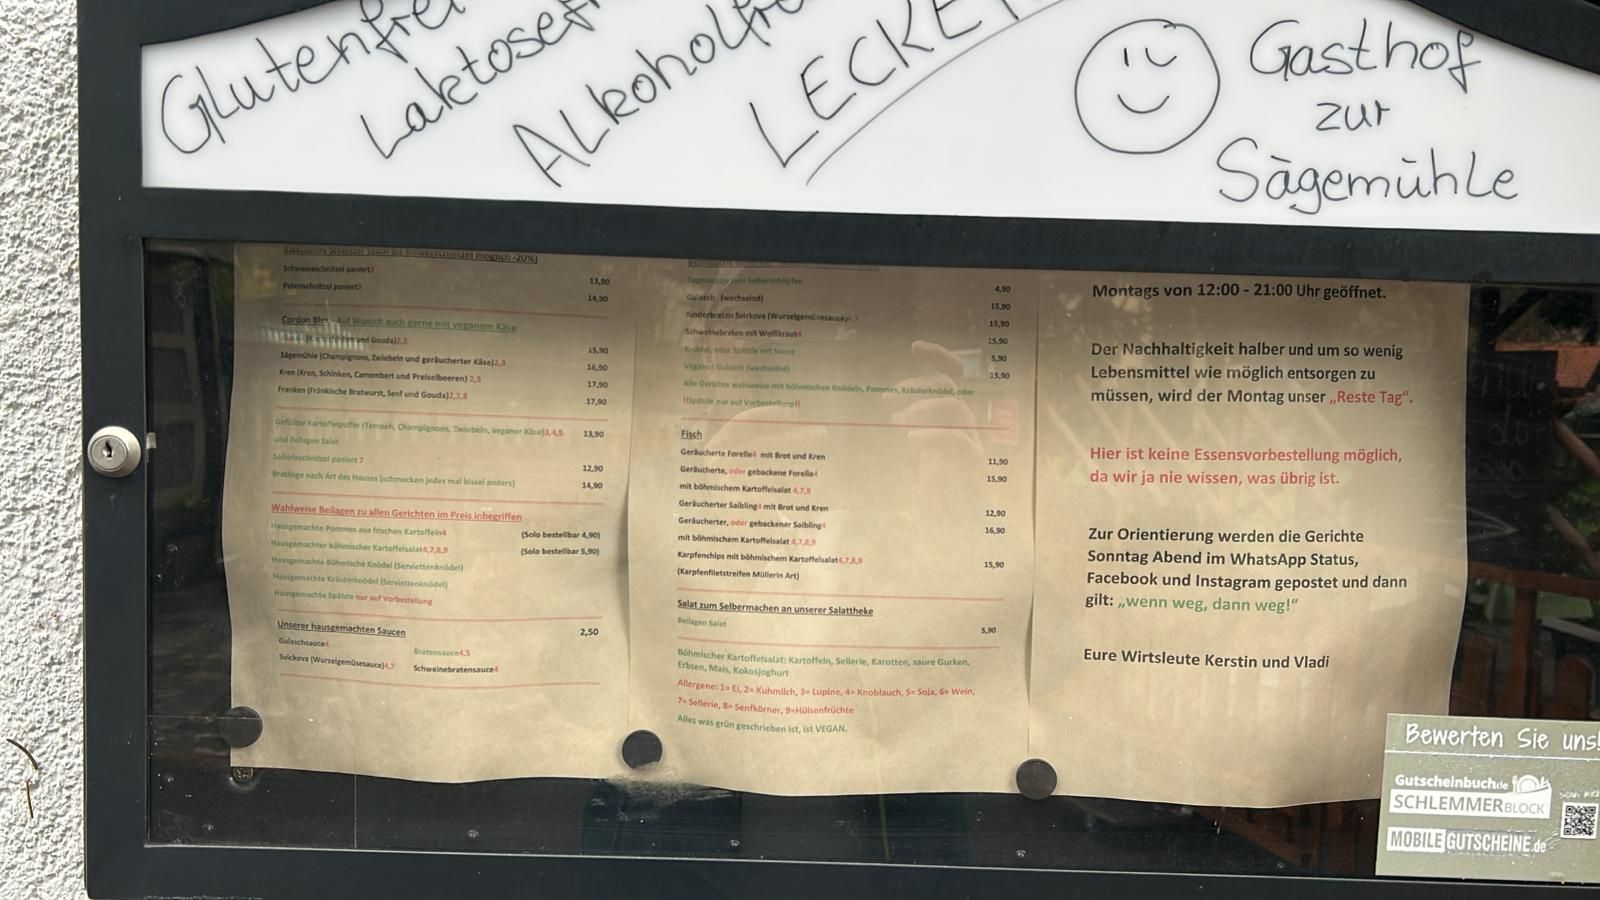 Glutenfrei
Laktosef
Alkoholfre
LECKE
Gasthof
zur
Sägemühle
Klassisches Schnitzel (auch als Kinderschnitzel möglich -20%)
Schweineschnitzel paniert3
13,90
Putenschnitzel paniert3
14,90
Cordon Bleu - Auf Wunsch auch gerne mit veganem Käse
und Gouda)2,3
15,90
Sägemühle (Champignons, Zwiebeln und geräucherter Käse)2,3
16,90
Kren (Kren, Schinken, Camembert und Preiselbeeren) 2,3
17,90
Franken (Fränkische Bratwurst, Senf und Gouda)2,3,8
17,90
Gefüllter Kartoffelpuffer (Tempeh, Champignons, Zwiebeln, veganer Käse)3,4,5
13,90
und Beilagen Salat
Sellerieschnitzel paniert 7
12,90
Bratlinge nach Art des Hauses (schmecken jedes mal bissel anders)
14,90
Wahlweise Beilagen zu allen Gerichten im Preis inbegriffen
Hausgemachte Pommes aus frischen Kartoffeln4
(Solo bestellbar 4,90)
Hausgemachter böhmischer Kartoffelsalat4,7,8,9
(Solo bestellbar 5,90)
Hausgemachte Böhmische Knödel (Serviettenknödel)
Hausgemachte Kräuterknödel (Serviettenknödel)
Hausgemachte Spätzle nur auf Vorbestellung
Unserer hausgemachten Saucen
2,50
Gulaschsauce4
Bratensauce4,5
Svickova (Wurzelgemüsesauce)4,7
Schweinebratensauce4
Tagessuppe zum Selberschöpfen
4,90
Gulasch (wechselnd)
15,90
Rinderbraten Svickova (Wurzelgemüsesauce)4,7
15,90
Schweinebraten mit Weißkraut4
15,90
Knödel, oder Spätzle mit Sauce
5,90
Veganes Gulasch (wechselnd)
15,90
Alle Gerichte wahlweise mit böhmischen Knödeln, Pommes, Kräuterknödel, oder
!!Spätzle nur auf Vorbestellung!!
Fisch
Geräucherte Forelle4 mit Brot und Kren
11,90
Geräucherte, oder gebackene Forelle4
15,90
mit böhmischem Kartoffelsalat 4,7,9
Geräucherter Saibling4 mit Brot und Kren
12,90
Geräucherter, oder gebackener Saibling4
16,90
mit böhmischem Kartoffelsalat 4,7,8,9
Karpfenchips mit böhmischem Kartoffelsalat4,7,8,9
15,90
(Karpfenfiletstreifen Müllerin Art)
Salat zum Selbermachen an unserer Salattheke
Beilagen Salat
5,90
Böhmischer Kartoffelsalat: Kartoffeln, Sellerie, Karotten, saure Gurken,
Erbsen, Mais, Kokosjoghurt
Allergene: 1= Ei, 2= Kuhmilch, 3= Lupine, 4= Knoblauch, 5= Soja, 6= Wein,
7= Sellerie, 8= Senfkörner, 9=Hülsenfrüchte
Alles was grün geschrieben ist, ist VEGAN.
Montags von 12:00 - 21:00 Uhr geöffnet.
Der Nachhaltigkeit halber und um so wenig
Lebensmittel wie möglich entsorgen zu
müssen, wird der Montag unser „Reste Tag“.
Hier ist keine Essensvorbestellung möglich,
da wir ja nie wissen, was übrig ist.
Zur Orientierung werden die Gerichte
Sonntag Abend im WhatsApp Status,
Facebook und Instagram gepostet und dann
gilt: „wenn weg, dann weg!“
Eure Wirtsleute Kerstin und Vladi
Bewerten Sie uns!
Gutscheinbuch.de
SCHLEMMERBLOCK
MOBILE GUTSCHEINE.de